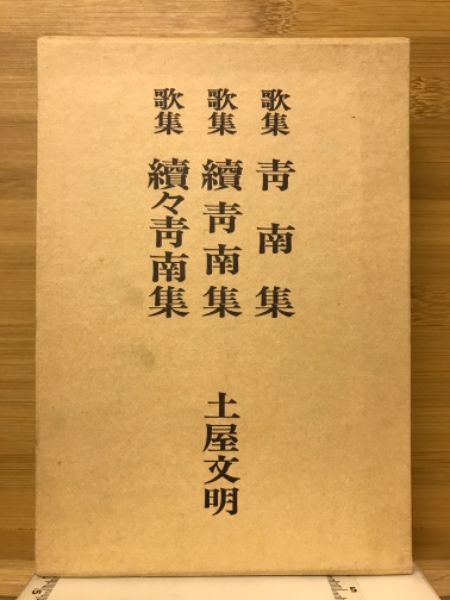 歌集 靑南集
歌集 續靑南集
歌集 續々靑南集
土屋文明
5
5